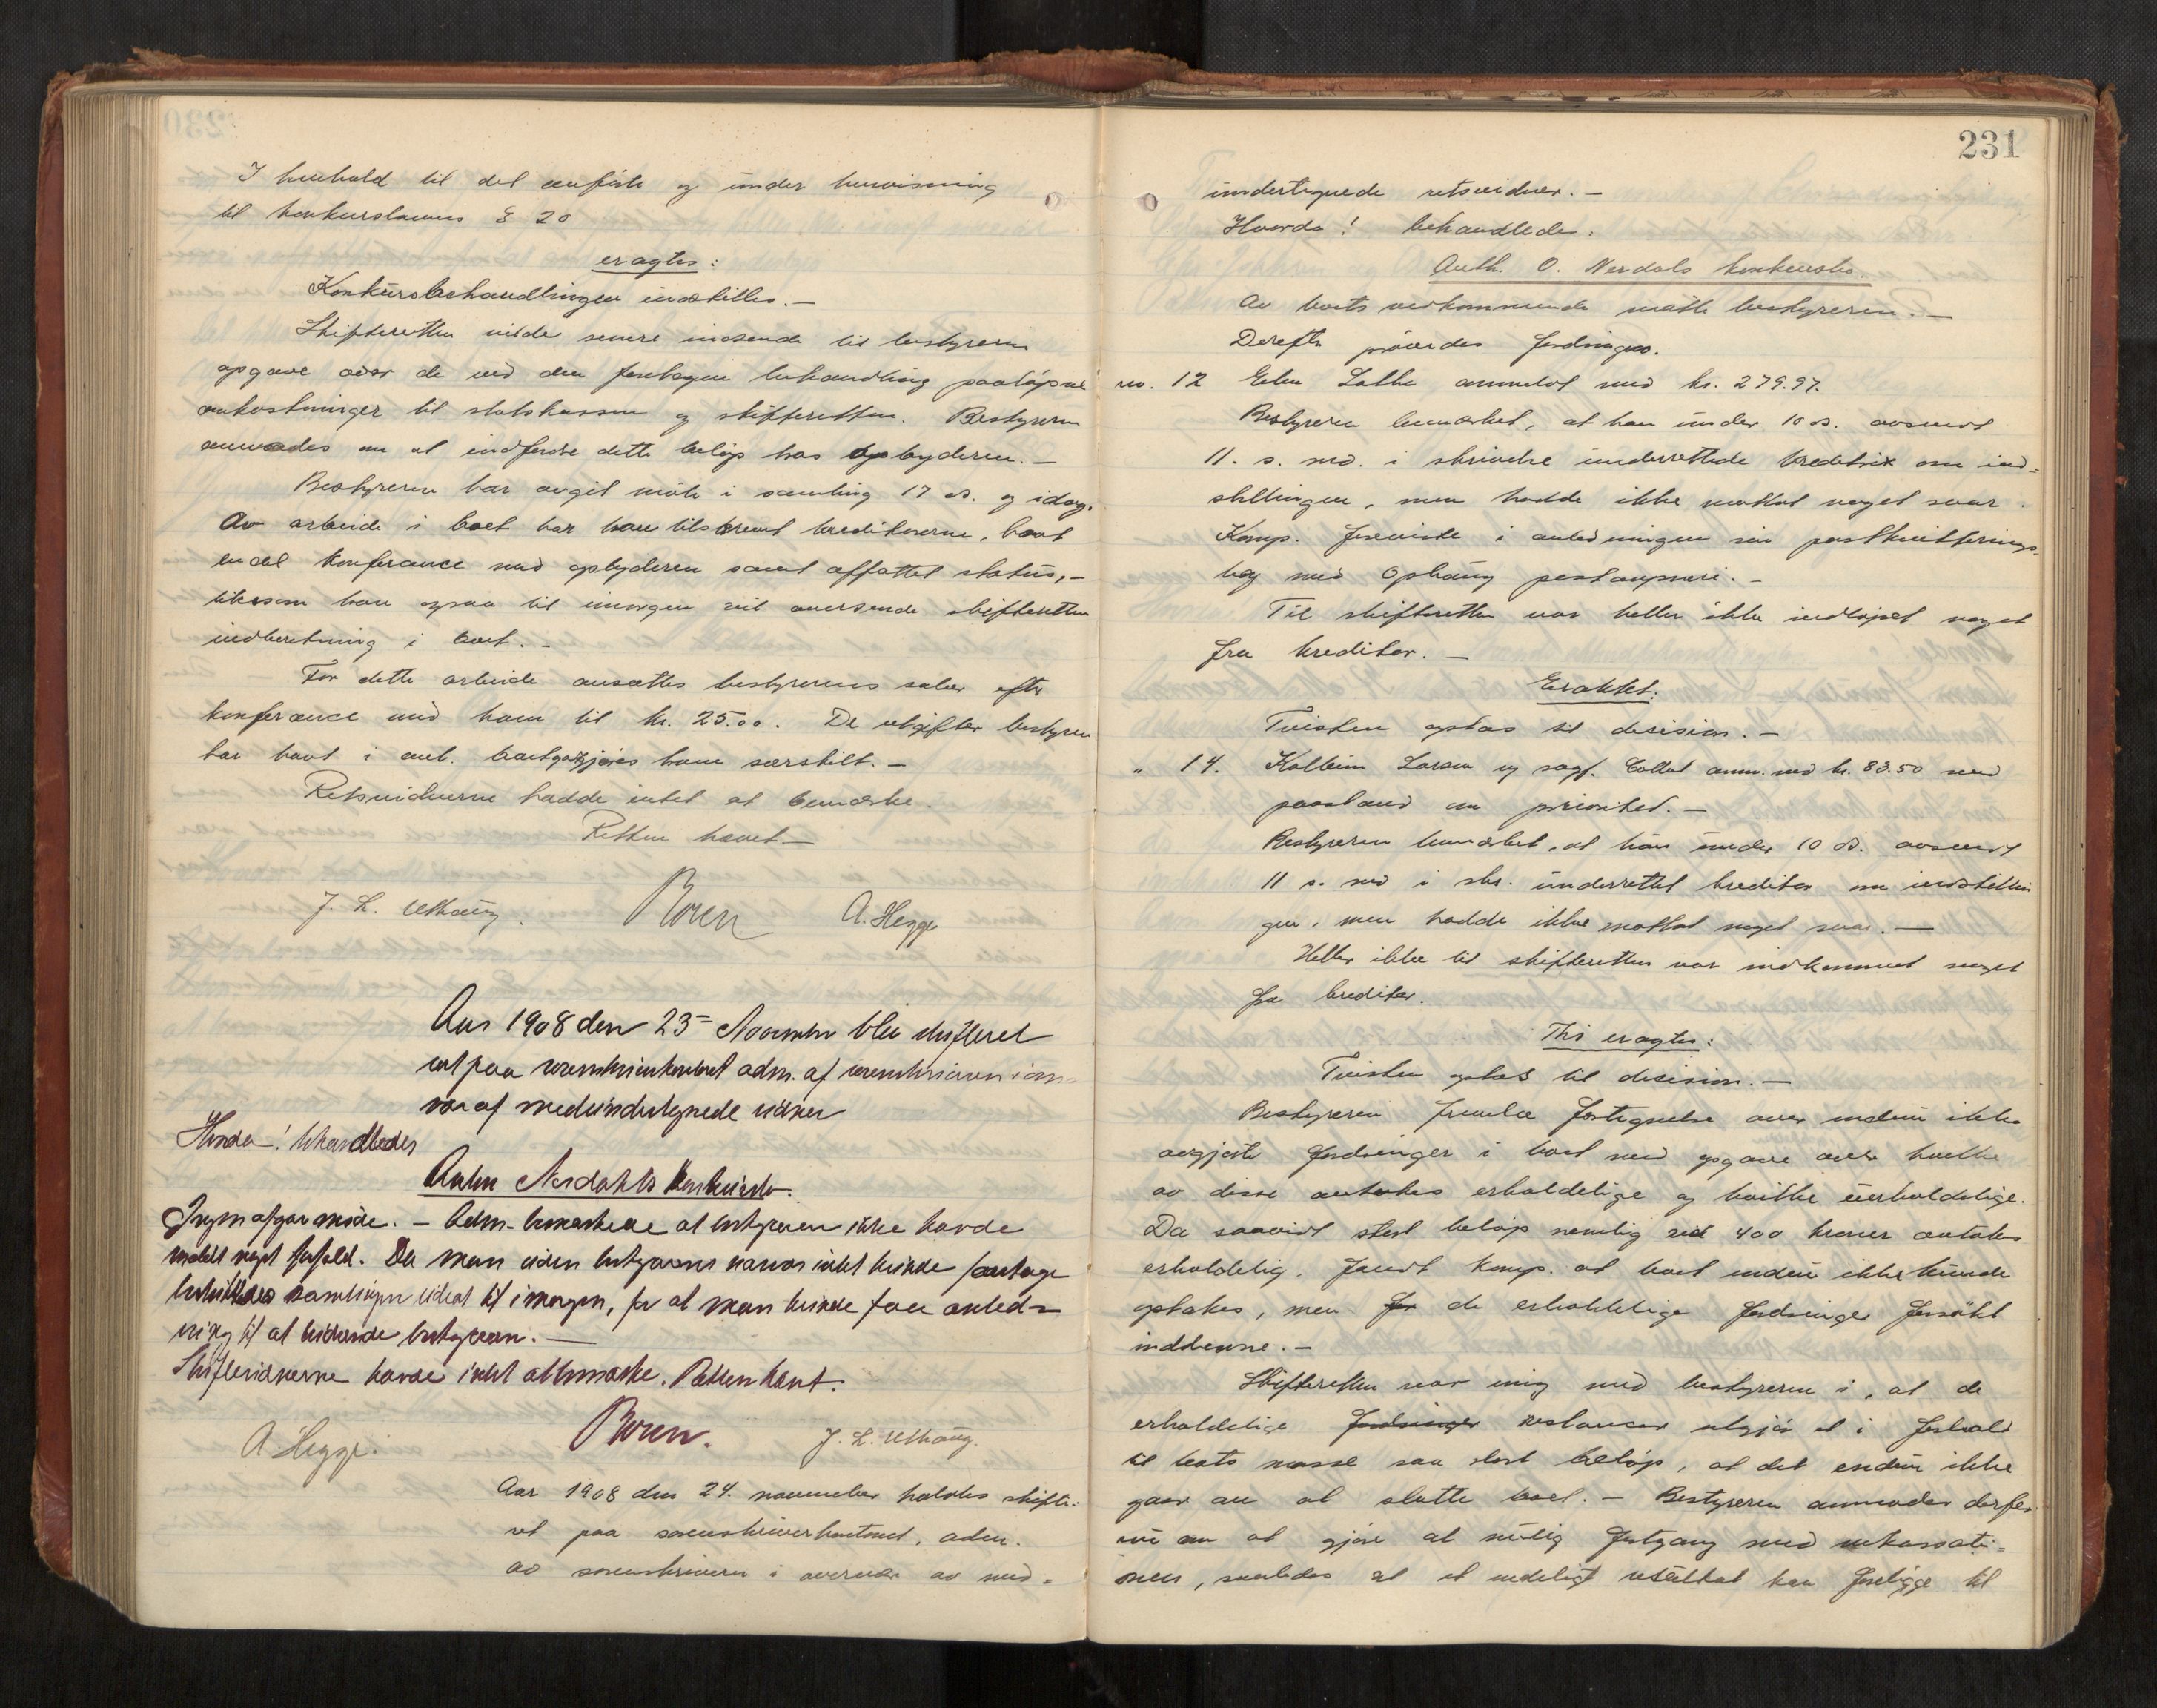 I henhold til det anførte og under henvisning
til konkurslovens § 20
eragtes:
Konkursbehandlingen indstilles. –
Skifteretten vilde senere indsende til bestyreren
opgave over de ved den foretagne behandling paaløpne
omkostninger til statskassen og skifteretten. Bestyreren
anmodes om at indfordre dette beløp hos opbyderen. –
Bestyreren har avgit møte i samling 17 ds. og idag.
Av arbeide i boet har han tilskrevet kreditorerne, havt
endel konferance med opbyderen samt affattet status, –
likesom han ogsaa til imorgen vil oversende skifteretten
indberetning i boet. –
For dette arbeide ansattes bestyrerens salær efter
konferance med ham til kr. 25.00. De utgifter bestyreren
har havt i anl. boet godtgjøres ham særskilt. –
Retsvidnerne hadde intet at bemærke.
Retten hævet –
J. L. Uthaug. Boren A. Hegge
Aar 1908 den 23 November blev skifteret
sat paa sorenskriverkontoret adm. af sorenskriveren i over-
vær af medundertegnede vidner
Hvorda! behandledes
Anthn Nerdahls konkursbo.
Ingen afgav møde. – Adm. bemærkede at bestyreren ikke havde
meldt noget forfald. Da man uden bestyrerens nærvær intet kunde foretage
besluttedes samlingen udsat til imorgen, for at man kunde faa anled-
ning til at tilkalde bestyreren. –
Skiftevidnerne havde intet at bemærke. Retten hævet.
A. Hegge. Boren. J. L. Uthaug.
Aar 1908 den 24. november holdtes skifte-
ret paa sorenskriverkontoret, adm.
av sorenskriveren i overvær av med-
231
undertegnede retsvidner. –
Hvorda! behandledes:
Anth. O. Nerdals konkursbo.
Av boets vedkommende møtte bestyreren. –
Derefter prøvedes fordringer.
no. 12 Lothe anmeldt med kr. 279.97.
Bestyreren bemærket, at han under 10 ds. avsendt
11. s. md. i skrivelse underrettede kreditrix om ind-
stillingen, men hadde ikke mottat noget svar.
Komp. foreviste i anledningen sin postkvitterings-
bog med Ophaug postaapneri. –
Til skifteretten var heller ikke indløpet noget
fra kreditor. –
Eraktet:
Tvisten optas til decision. –
" 14. Kolbein Larsen og sagf. Collet anm. med kr. 83.50 med
paastand om prioritet. –
Bestyreren bemærket, at han under 10 ds. avsendt
11 s. md i skr. underrettet kreditor om indstillin
gen, men hadde ikke mottat noget svar. –
Heller ikke til skifteretten var indkommet noget
fra kreditor.
Thi eragtes:
Tvisten optas til decision. –
Bestyreren fremla fortegnelse over endnu ikke
avgjorte fordringer i boet med opgave over hvilke
av disse antokes erholdelige og hvilke uerholdelige.
Da saavidt stort beløp nemlig ved 400 kroner antokes
erholdelig, fandt komp. at boet endnu ikke kunde
optakes, men de erholdelige fordringer forsøkt
inddrevne. –
Skifteretten var enig med bestyreren i, at de
erholdelige fordringer restancer utgjør et i forhold
til boets masse saa stort beløp, at det endnu ikke
gaar an at slutte boet. – Bestyreren anmodes derfor
om at gjøre al mulig fortgang med inkassati-
onen, saaledes at et endeligt resultat kan foreligge til